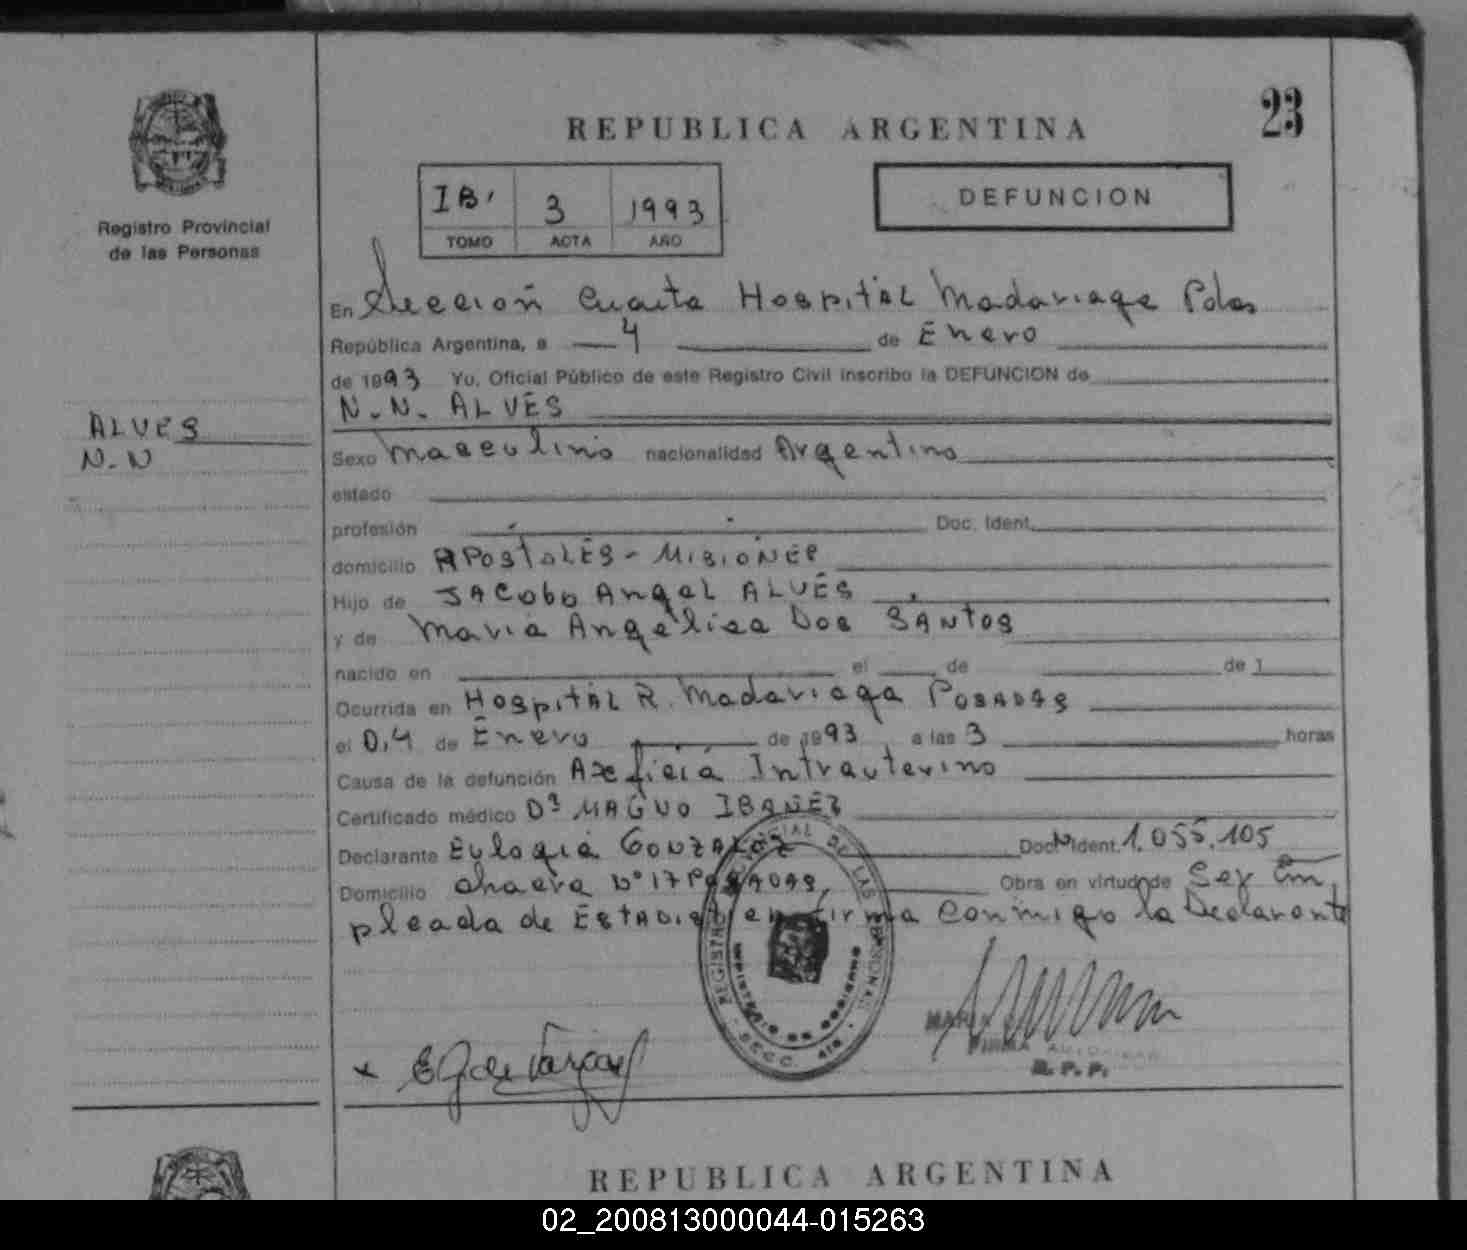 23
REPUBLICA ARGENTINA
IB' 3 1993
TOMO ACTA AÑO
DEFUNCION
Registro Provincial
de las Personas
En Sección Cuarta Hospital Madariaga Pdas
República Argentina, a 4 de Enero
de 1993 Yo, Oficial Público de este Registro Civil inscribo la DEFUNCION de
N.N. ALVES
ALVES
N.N
Sexo masculino nacionalidad Argentino
estado
profesión Doc. Ident.
domicilio APostoLES - MisioNES
Hijo de JACobo Angel ALVES
y de Maria Angélica Dos SANtos
nacido en el de de 1
Ocurrida en HospitAL R. Madariaga POSADAS
el 0,4 de Enero de 1993 a las 3 horas
Causa de la defunción Axficia Intrauterino
Certificado médico MAGNO IBAÑEZ
Declarante Eulogia GONZALEZ Doc Ident. 1.055.105
Domicilio chacra Nº 17 POSADAS, Obra en virtud de Ser Em
pleada de firma conmigo la Declarante
REGISTRO PROVINCIAL DE LAS PERSONAS
MINISTERIO DE GOBIERNO
SECC. 4ta
R. P. P.
REPUBLICA ARGENTINA
02_200813000044-015263